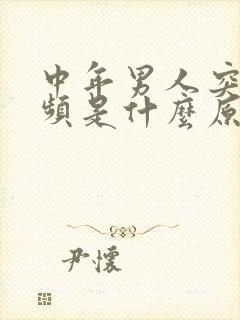 中年男人突
頻是什麼原
尹懷